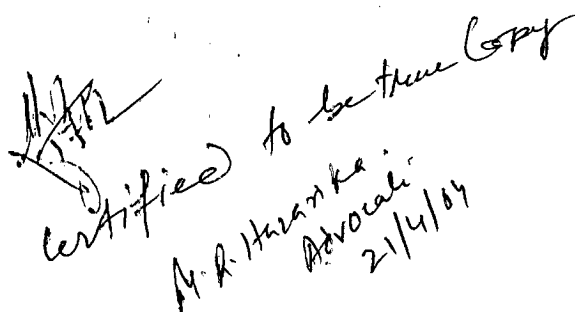 Certified to be true Copy
M. R. Hazarika.
Advocate
21/4/04